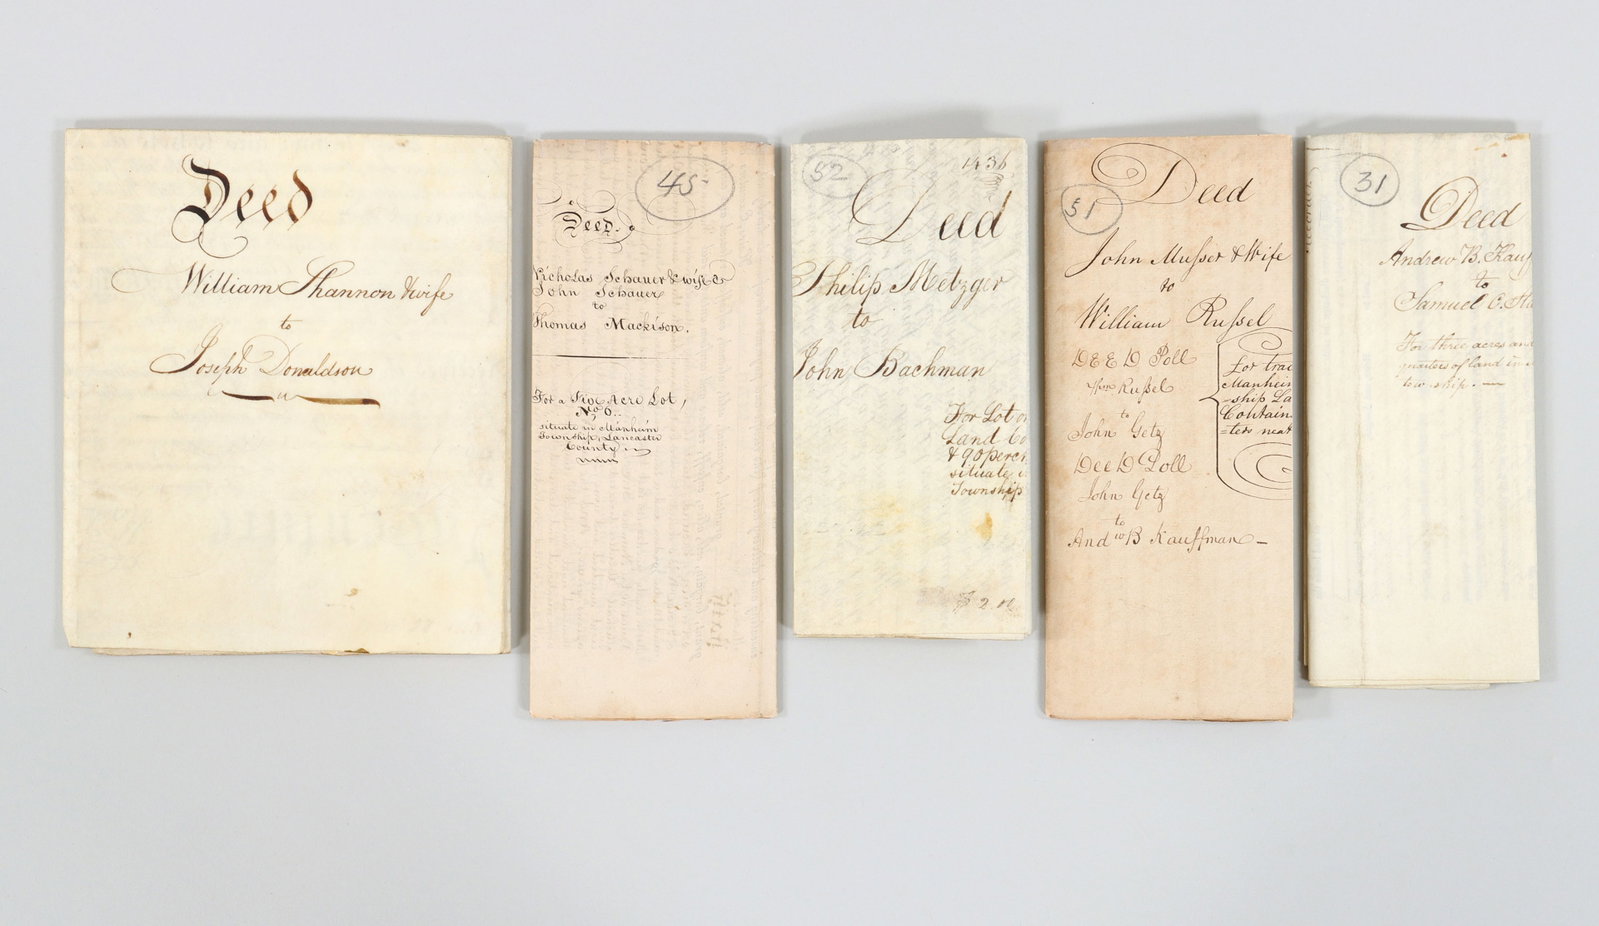 Deed
William Shannon & wife
to
Joseph Donaldson
45
Deed.
Nicholas Schauer & wife &
John Schauer
to
Thomas Mackison.
For a Five Acre Lot,
No 6..
situate in Manheim
Township, Lancaster
County
52
1436
Deed
Philip Metzger
to
John Bachman
For Lot
Land
& 90 perc
situate
Township
$ 2.00
51
Deed
John Musser & Wife
to
William Russel
DEED Poll
Wm Russel
to
John Getz
DeeD Poll
John Getz
to
Andw B Kauffman
For trac
Manheim
-ship La
Contain
=ter neat
31
Deed
Andrew B. Kauf
to
Samuel C.
For three acres and
quarters of land in
township.